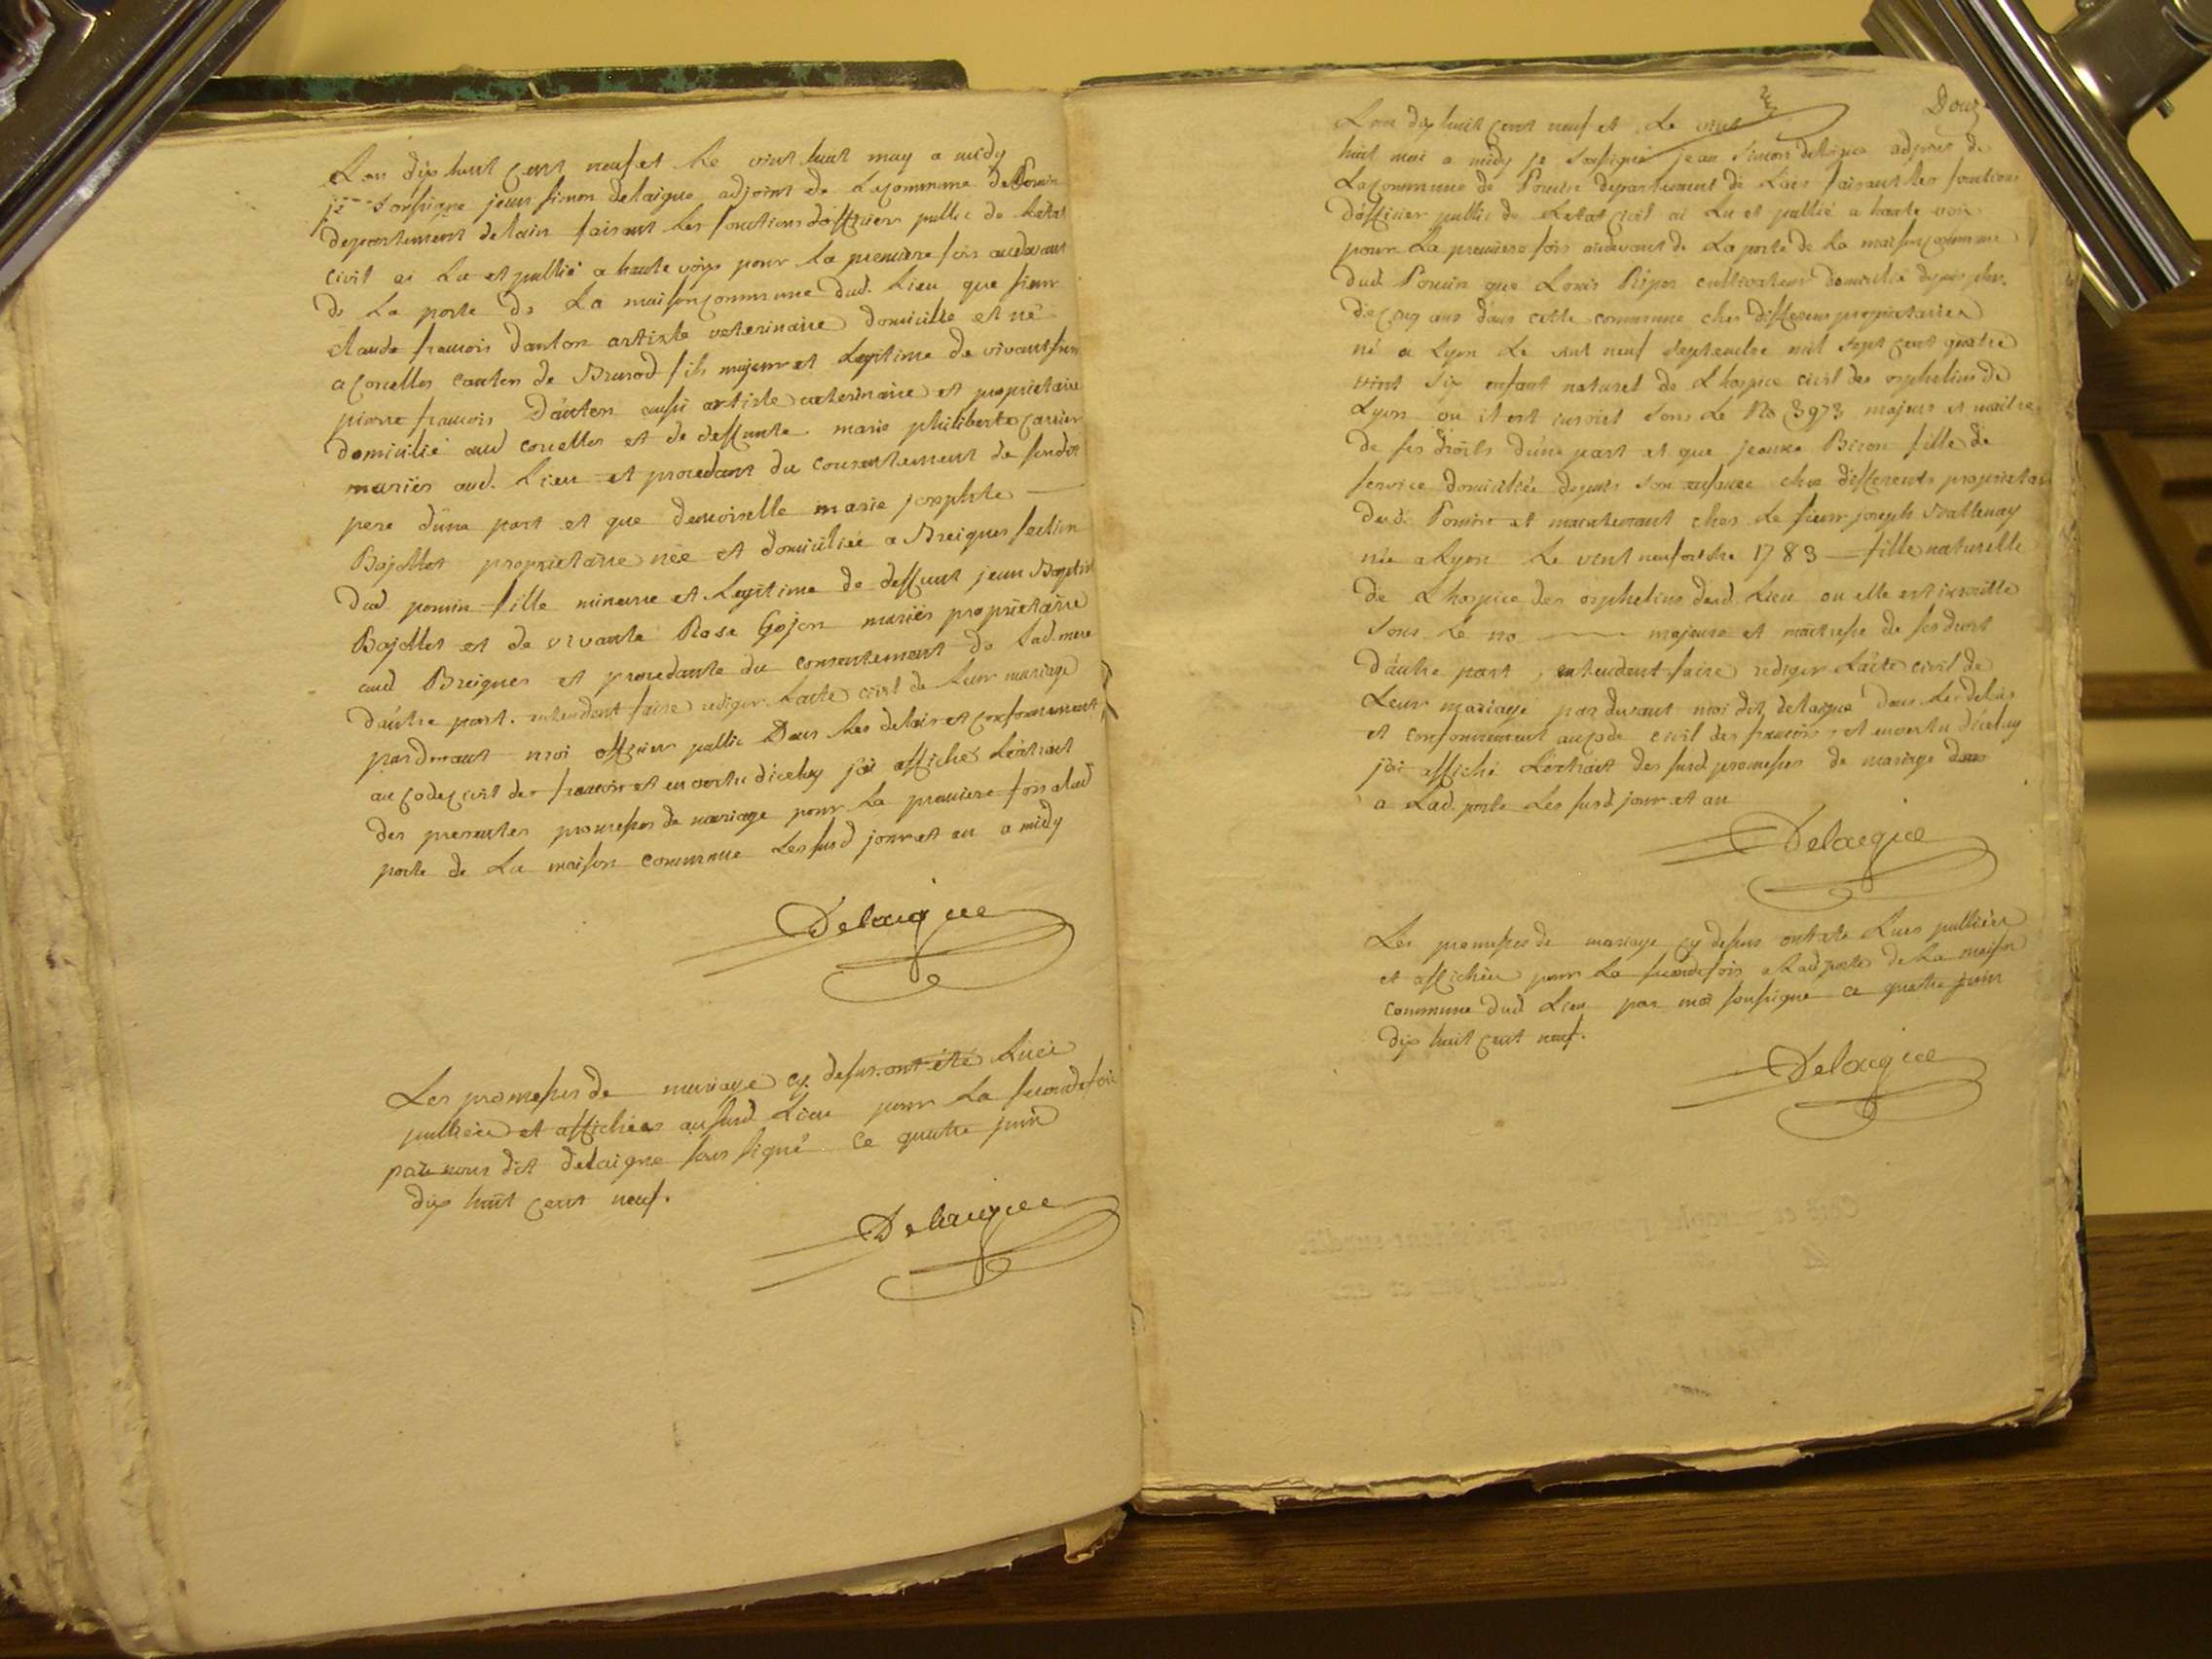 Lan dix huit cent neuf et le vint huit may a midy
je soussigne jean simon delaigue adjoint de la commune de Poncin
departement de lain faisant les fonctions dofficier public de letat
civil ai lu et publié a haute voix pour la premiere fois audevant
de La porte de La maison commune dud. Lieu que sieur
claude francois Danton artiste veterinaire domicilié et né
a corcelles canton de Brenod fils majeur et legitime de vivant sieur
pierre francois Danton aussi artiste veterinaire et proprietaire
domicilié aud corcelles et de deffunte marie philiberte carrier
mariés aud. Lieu et procedant du consentement de sondit
pere d'une part et que demoiselle marie josephte
Bajollet proprietaire née et domiciliée a Breignes section
dud poncin fille mineure et Legitime de deffunt jean Baptiste
Bajollet et de vivante Rose Gojon mariés proprietaire
aud Breignes et procedante du consentement de lad. mere
dautre part. entendent faire rediger lacte civil de leur mariage
pardevant moi officier public Dans les delais et conformement
au code civil des francois et en vertu diceluy jai affiché Lextrait
des presentes promesses de mariage pour La premiere fois alad
porte de La maison commune Les susd jour et an a midy
Delaigue
Les promesses de mariage cy dessus ont été Lues
publiées et affichées au susd Lieu pour La seconde fois
par nous dit delaigue soussigné ce quatre juin
dix huit cent neuf.
Delaigue
Douz
Lan dix huit cent neuf et Le vint
huit mai a midy je soussigné jean simon delaigue adjoint de
La commune de Poncin departement de Lain faisant les fonctions
dofficier public de Letat civil ai Lu et publié a haute voix
pour La premiere fois audevant de La porte de La maison commune
dud Poncin que Louis Ripos cultivateur domicilié depuis plus
de cinq ans dans cette commune ches differens proprietaires
né a Lyon Le vint neuf septembre mil sept cent quatre
vint six enfant naturel de Lhospice civil des orphelins de
Lyon ou il est inscrit sous Le No 3973 majeur et maitre
de ses droits d'une part et que jeanne Biron fille de
service domiciliée depuis son enfance ches differents proprietaires
dud. Poncin et maintenant ches Le sieur joseph
née a Lyon Le vint neuf octobre 1783 fille naturelle
de Lhospice des orphelins dud. Lieu ou elle est inscritte
sous Le no majeure et maitresse de ses droits
d'autre part, entendent faire rediger Lacte civil de
Leur mariage pardevant moi dit delaigue dans Les delais
et conformement au code civil des francois, et en vertu diceluy
jai affiché Lextrait des susd promesses de mariage
a Lad. porte Les susd jour et an
Delaigue
Les promesses de mariage cy dessus ont ete Lues publiées
et affichées pour La seconde fois a Lad porte de La maison
commune dud Lieu par moi soussigné ce quatre juin
dix huit cent neuf.
Delaigue